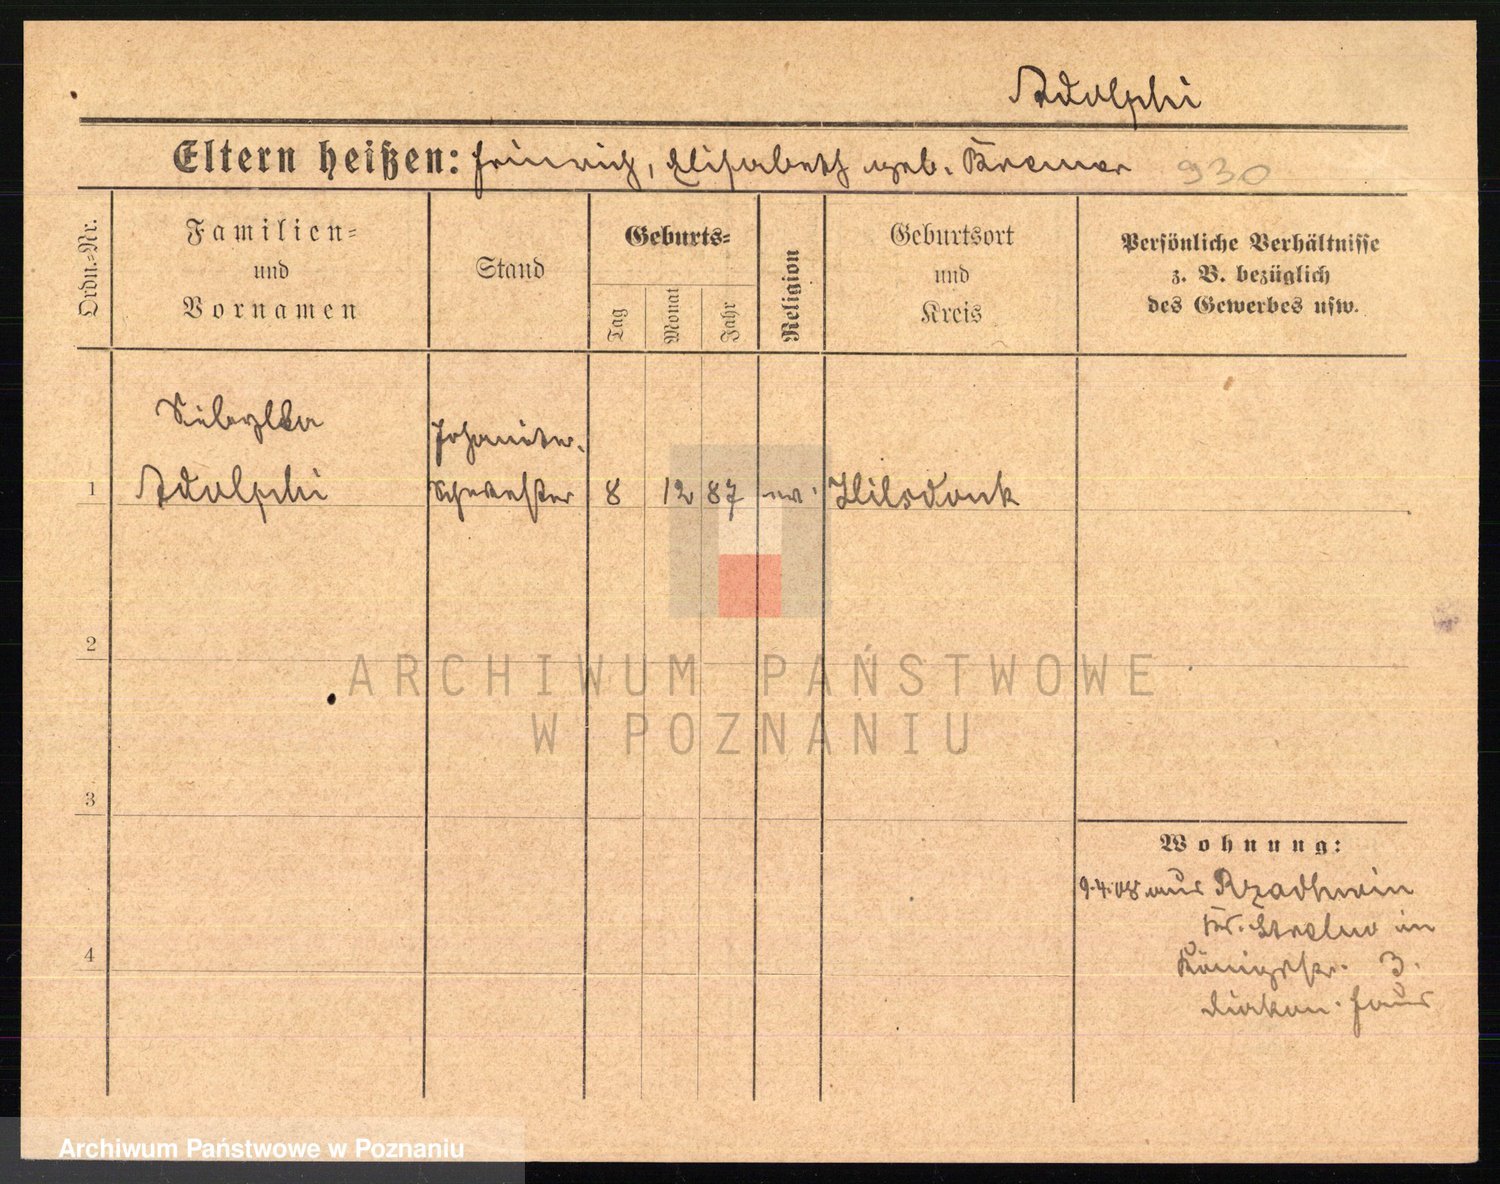 Adolphi
Eltern heißen: Heinrich, Elisabeth geb. Kremer 930
Ordn.-Nr.
Familien-
und
Vornamen
Stand
Geburts-
Tag
Monat
Jahr
Religion
Geburtsort
und
Kreis
Persönliche Verhältnisse
z. B. bezüglich
des Gewerbes usw.
Johaniter-
1 Adolphi Schwester 8 12 87 ev.
2
3
4
Wohnung:
9.4.08 aus
Kr. Strelno in
Königstr. 3.
Diakon. Haus
ARCHIWUM PAŃSTWOWE
W POZNANIU
Archiwum Państwowe w Poznaniu